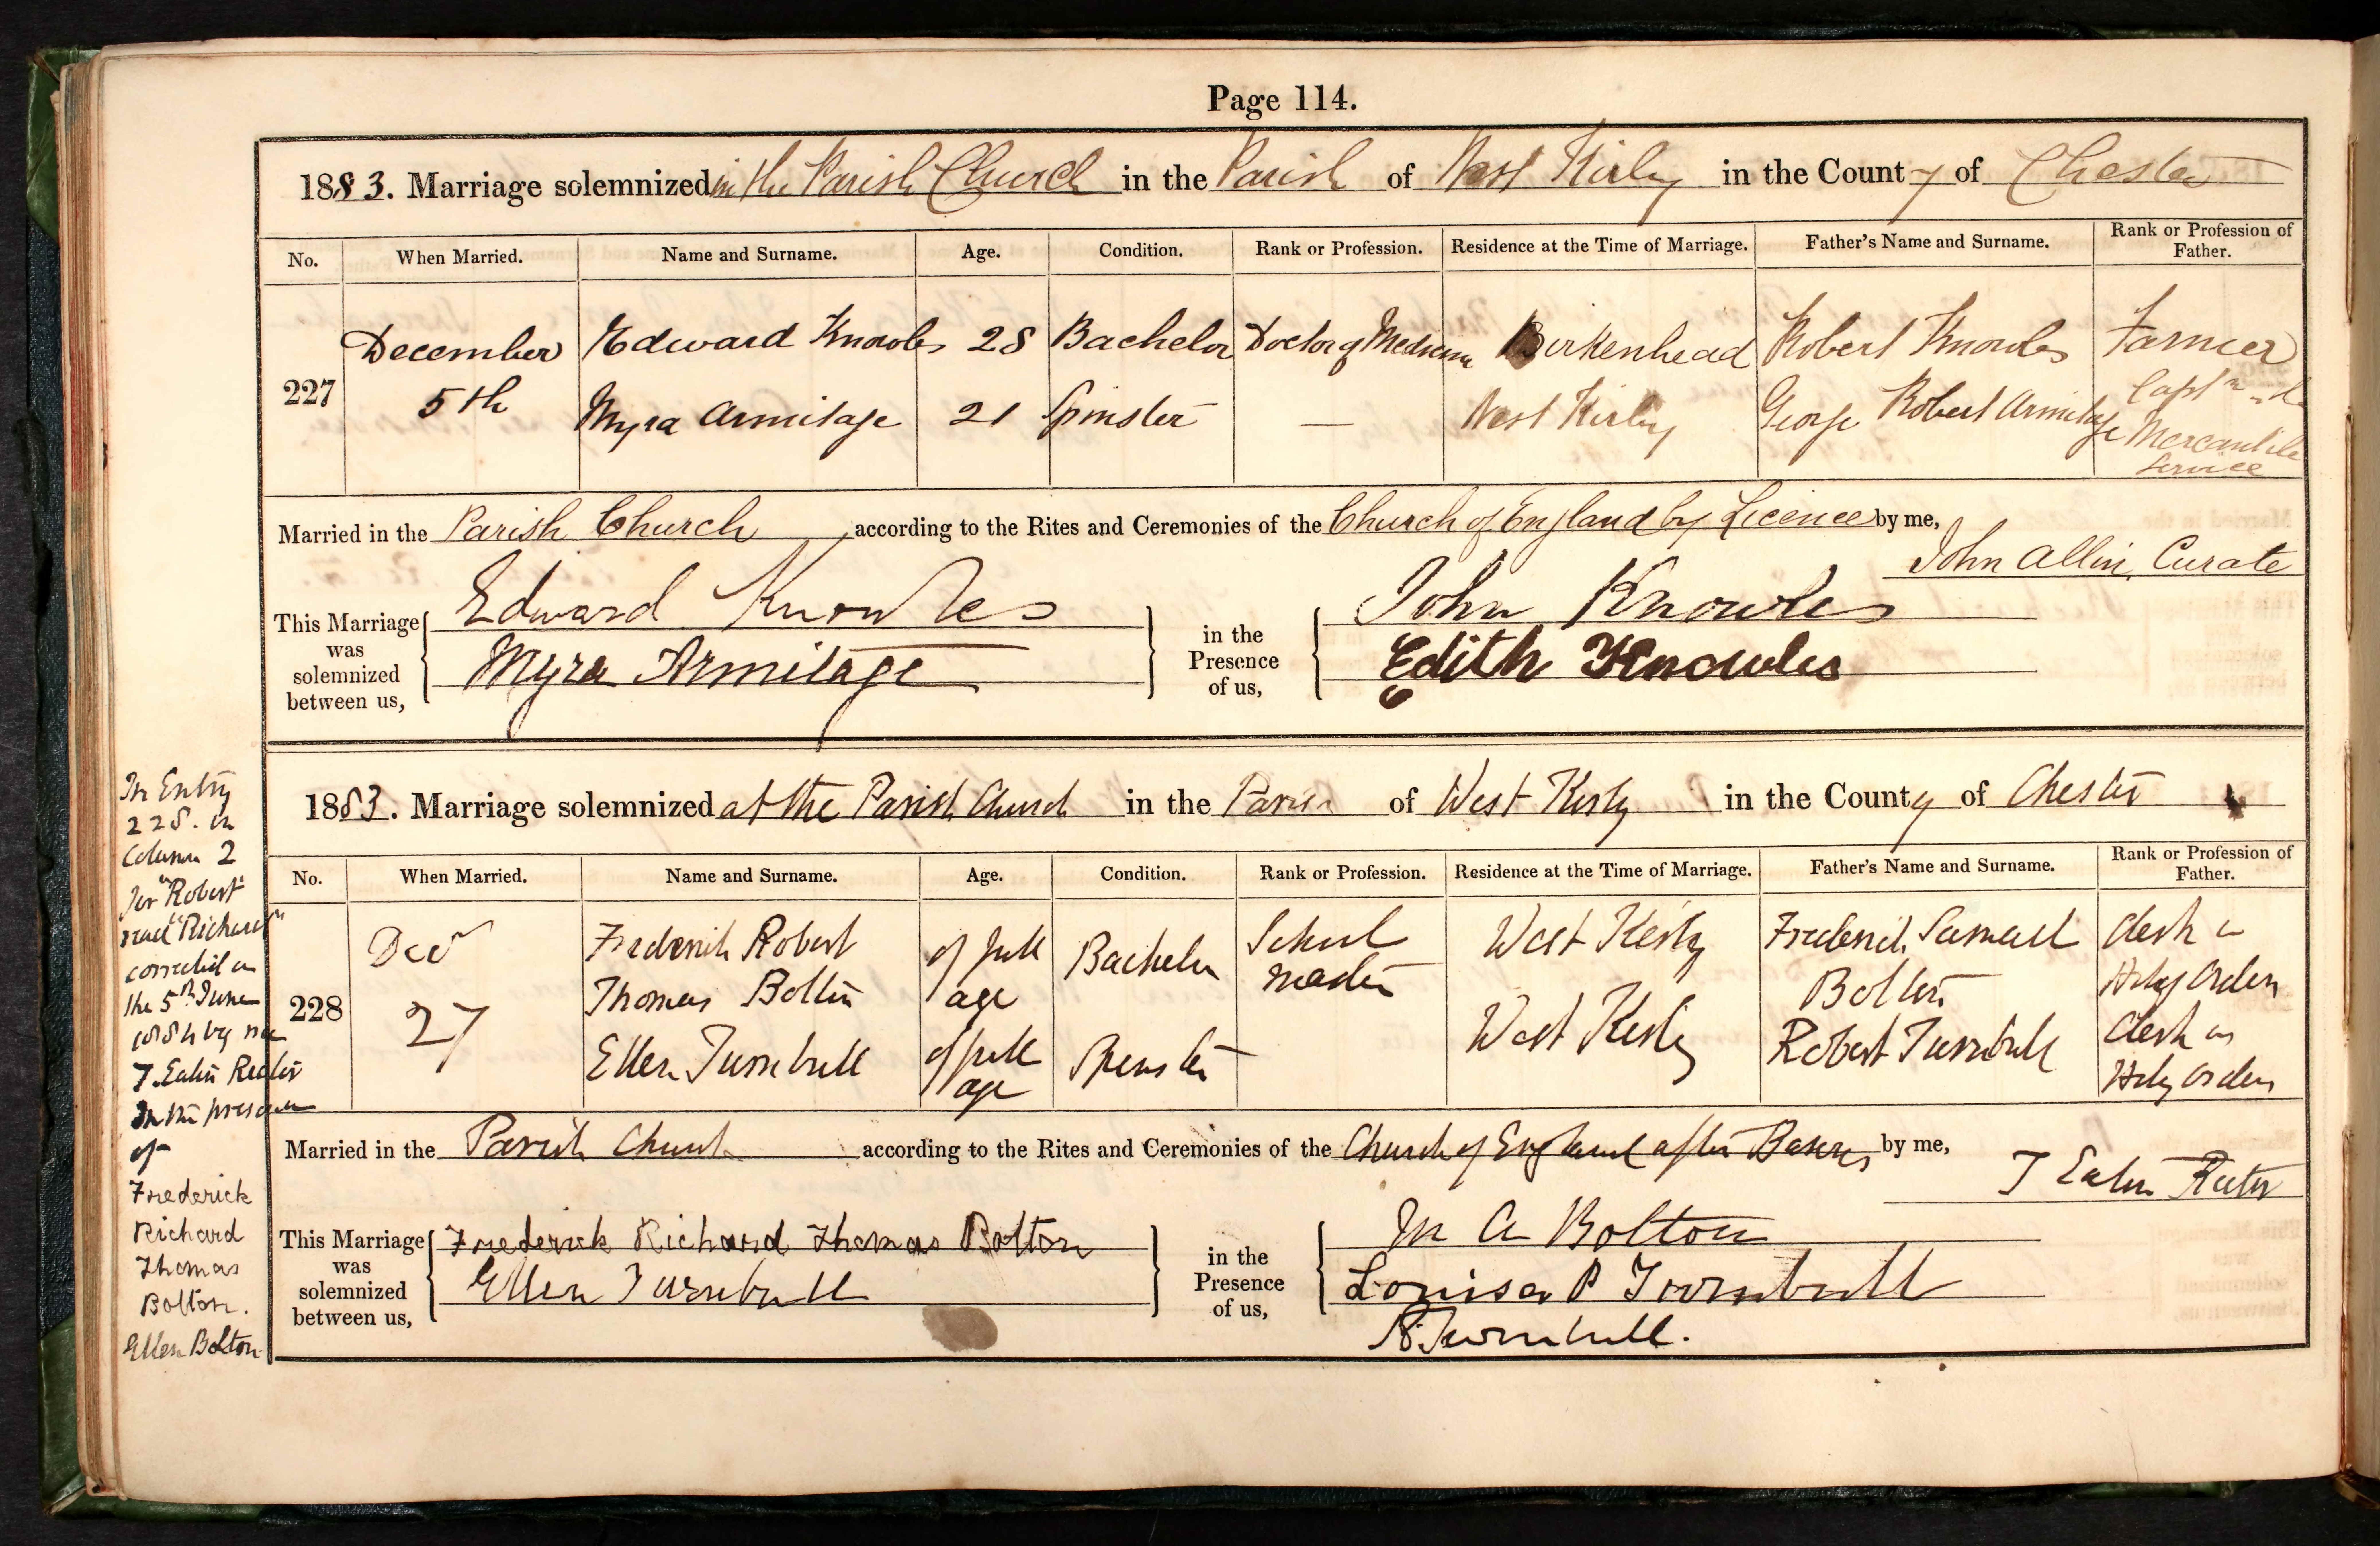 Page 114.
1883. Marriage solemnized in the Parish Church in the Parish of West Kirby in the County of Chester
No. When Married. Name and Surname. Age. Condition. Rank or Profession. Residence at the Time of Marriage. Father's Name and Surname. Rank or Profession of Father.
227 December 5th Edward Knowles 28 Bachelor Doctor of Medicine Birkenhead Robert Knowles Farmer
Myra Armitage 21 Spinster — West Kirby George Robert Armitage Captn Mercantile Service
Married in the Parish Church according to the Rites and Ceremonies of the Church of England by Licence by me,
John Allin, Curate
This Marriage was solemnized between us, Edward Knowles
Myra Armitage
in the Presence of us, John Knowles
Edith Knowles
1883. Marriage solemnized at the Parish Church in the Parish of West Kirby in the County of Chester
No. When Married. Name and Surname. Age. Condition. Rank or Profession. Residence at the Time of Marriage. Father's Name and Surname. Rank or Profession of Father.
228 Decr 27 Frederick Robert Thomas Bolton of full age Bachelor School master West Kirby Frederick Samuel Bolton Clerk in Holy Orders
Ellen Turnbull of full age Spinster West Kirby Robert Turnbull Clerk in Holy Orders
Married in the Parish Church according to the Rites and Ceremonies of the Church of England after Banns by me,
T Eaton Rector
This Marriage was solemnized between us, Frederick Richard Thomas Bolton
Ellen Turnbull
in the Presence of us, M A Bolton
Louisa P Turnbull
R Turnbull.
In Entry
228. in
Column 2
for "Robert"
read "Richard"
corrected on
the 5th June
1884 by me
T Eaton Rector
In the presence
of
Frederick
Richard
Thomas
Bolton.
Ellen Bolton